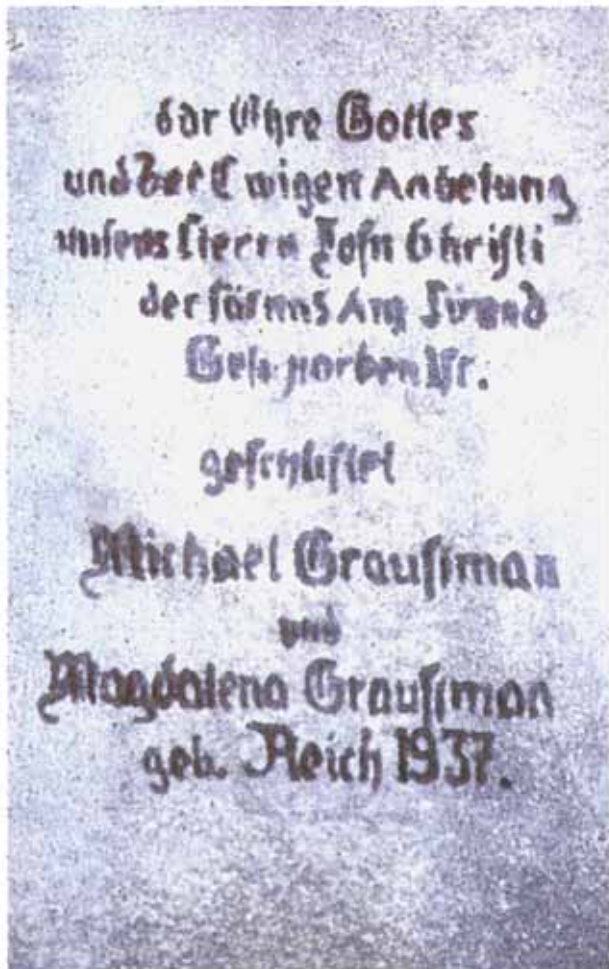 dar Ehre Gottes
und der Ewigen Anbetung
unsers Herrn Jesu Christi
der für uns Am
Gestorben Ist.
geschtiftet
Michael Graussman
und
Magdalena Graussman
geb. Reich 1937.